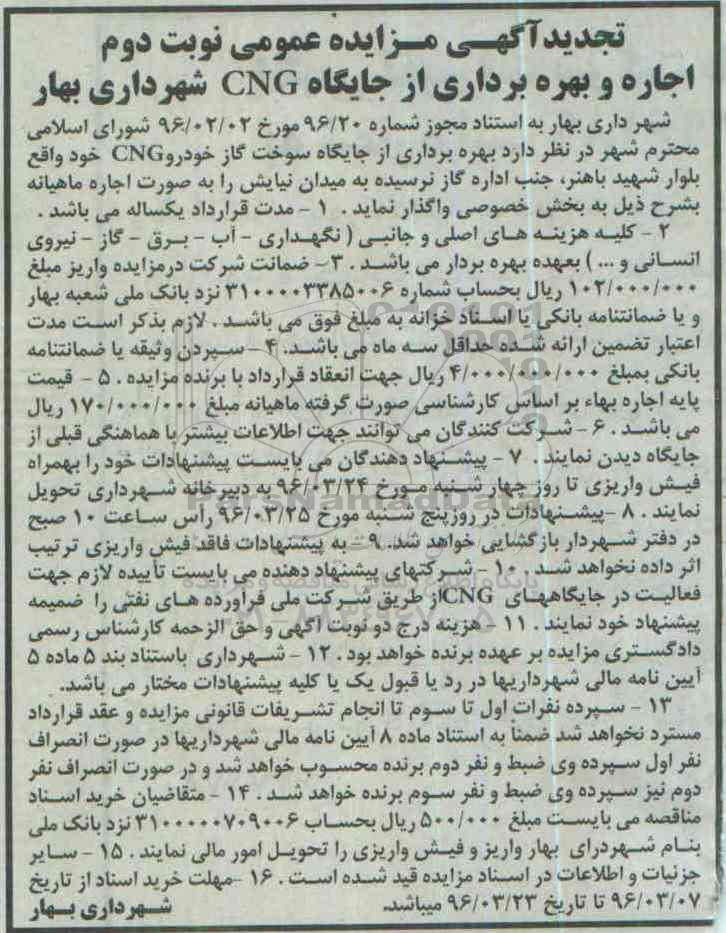 تجدیدآگهـی مـزایده عمومی نوبت دوم
اجاره و بهره برداری از جایگاه CNG شهرداری بهار
شهر داری بهار به استناد مجوز شماره ۹۶/۲۰ مورخ ۹۶/۰۲/۰۲ شورای اسلامی
محترم شهر در نظر دارد بهره برداری از جایگاه سوخت گاز خودروCNG خود واقع
بلوار شهید باهنر، جنب اداره گاز نرسیده به میدان نیایش را به صورت اجاره ماهیانه
بشرح ذیل به بخش خصوصی واگذار نماید . ۱ - مدت قرارداد یکساله می باشد .
۲ - کلیه هزینه های اصلی و جانبی ( نگهداری - آب - برق - گاز - نیروی
انسانی و ... ) بعهده بهره بردار می باشد . ۳- ضمانت شرکت درمزایده واریز مبلغ
۱۰۲/۰۰۰/۰۰۰ ریال بحساب شماره ۳۱۰۰۰۰۳۳۸۵۰۰۶ نزد بانک ملی شعبه بهار
و یا ضمانتنامه بانکی یا اسناد خزانه به مبلغ فوق می باشد . لازم بذکر است مدت
اعتبار تضمین ارائه شده حداقل سه ماه می باشد. ۴ - سپردن وثیقه یا ضمانتنامه
بانکی بمبلغ ۴/۰۰۰/۰۰۰/۰۰۰ ریال جهت انعقاد قرارداد با برنده مزایده . ۵ - قیمت
پایه اجاره بهاء بر اساس کارشناسی صورت گرفته ماهیانه مبلغ ۱۷۰/۰۰۰/۰۰۰ ریال
می باشد . ۶ - شرکت کنندگان می توانند جهت اطلاعات بیشتر با هماهنگی قبلی از
جایگاه دیدن نمایند . ۷ - پیشنهاد دهندگان می بایست پیشنهادات خود را بهمراه
فیش واریزی تا روز چهار شنبه مورخ ۹۶/۰۳/۲۴ به دبیرخانه شهرداری تحویل
نمایند . ۸ -پیشنهادات در روزپنج شنبه مورخ ۹۶/۰۳/۲۵ رأس ساعت ۱۰ صبح
در دفتر شهردار بازگشایی خواهد شد. ۹ - به پیشنهادات فاقد فیش واریزی ترتیب
اثر داده نخواهد شد . ۱۰ - شرکتهای پیشنهاد دهنده می بایست تأییده لازم جهت
فعالیت در جایگاههای CNGاز طریق شرکت ملی فرآورده های نفتی را ضمیمه
پیشنهاد خود نمایند . ۱۱ - هزینه درج دو نوبت آگهی و حق الزحمه کارشناس رسمی
دادگستری مزایده بر عهده برنده خواهد بود . ۱۲ - شهرداری باستناد بند ۵ ماده ۵
آیین نامه مالی شهرداریها در رد یا قبول یک یا کلیه پیشنهادات مختار می باشد.
۱۳ - سپرده نفرات اول تا سوم تا انجام تشریفات قانونی مزایده و عقد قرارداد
مسترد نخواهد شد ضمناً به استناد ماده ۸ آیین نامه مالی شهرداریها در صورت انصراف
نفر اول سپرده وی ضبط و نفر دوم برنده محسوب خواهد شد و در صورت انصراف نفر
دوم نیز سپرده وی ضبط و نفر سوم برنده خواهد شد . ۱۴ - متقاضیان خرید اسناد
مناقصه می بایست مبلغ ۵۰۰/۰۰۰ ریال بحساب ۳۱۰۰۰۰۰۷۰۹۰۰۶ نزد بانک ملی
بنام شهردرای بهار واریز و فیش واریزی را تحویل امور مالی نمایند . ۱۵ - سایر
جزئیات و اطلاعات در اسناد مزایده قید شده است . ۱۶ -مهلت خرید اسناد از تاریخ
۹۶/۰۳/۰۷ تا تاریخ ۹۶/۰۳/۲۳ میباشد. شهرداری بهار